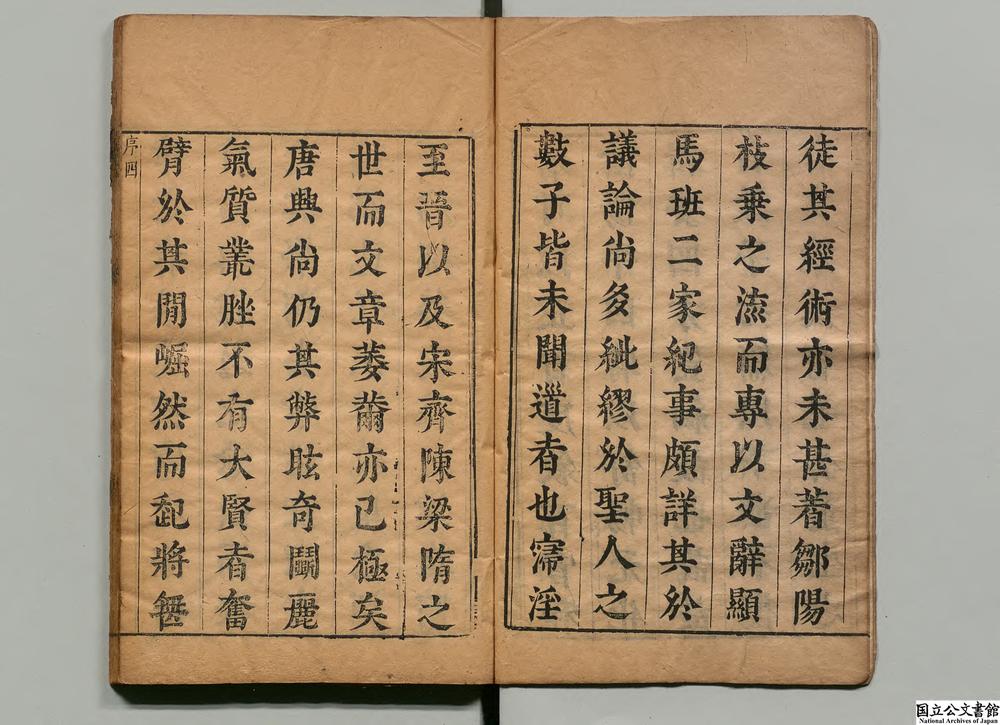 徒其經術亦未甚着鄒陽
枚乗之流而專以文辭顯
馬班二家紀事頗詳其於
議論尚多紕繆於聖人之
數子皆未聞道者也寖淫
至晉以及宋齊陳梁隋之
世而文章萎薾亦已極矣
唐興尚仍其弊眩奇鬭麗
氣質叢脞不有大賢者奮
臂於其間崛然而起將無
序四
国立公文書館
National Archives of Japan